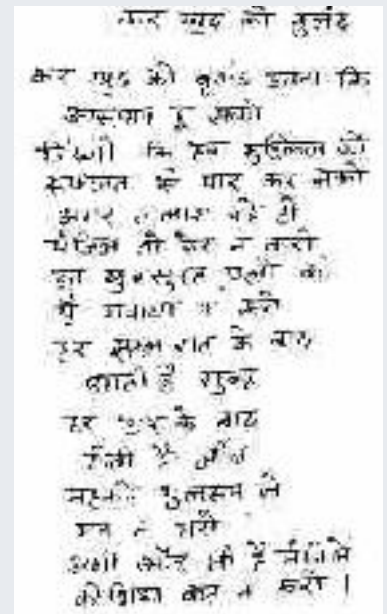 कर खुद को बुलंद
कर खुद को बुलंद इतना कि
आसमान छू सको
जिंदगी कि हर मुश्किल को
के पार कर सको
अगर तलाश रहे हो
मंजिल तो देर न करो
इन खुबसूरत पलों को
यूँ गवाया न करो
हर रात के बाद
आती है सुबह
हर के बाद
होती है
महकते गुलसन से
मन न भरो
अभी और भी है मंजिलें
कोशिश कम न करो।